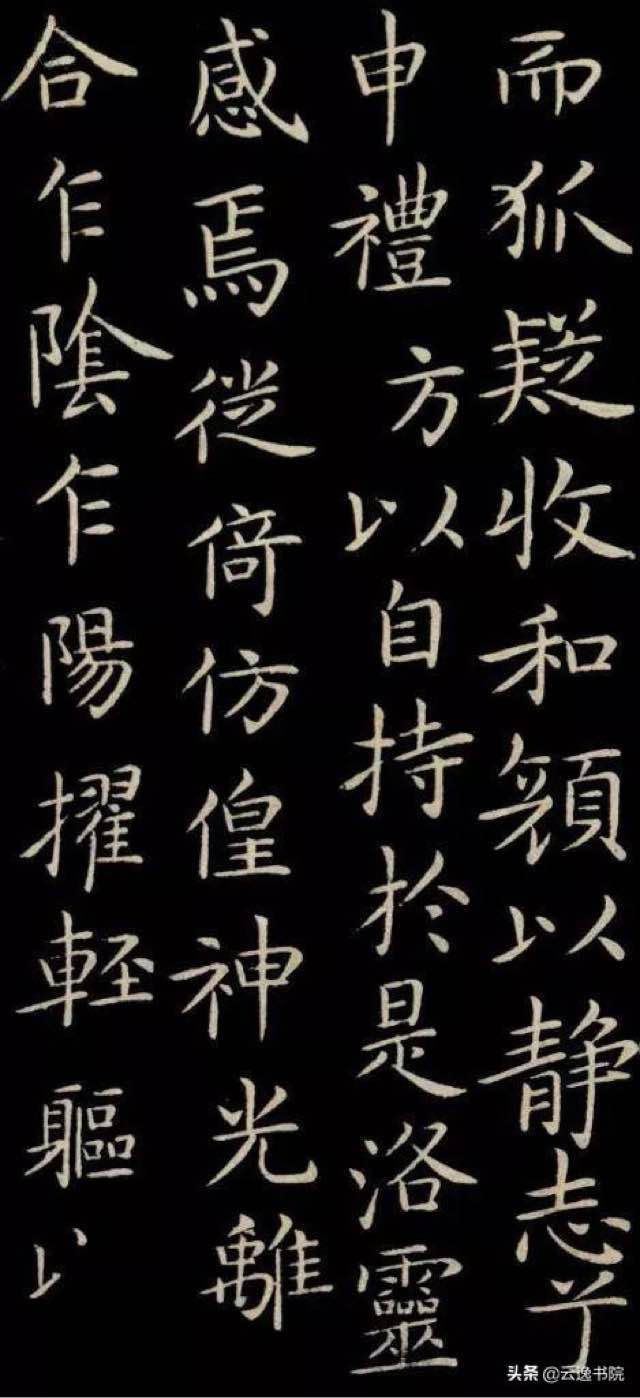 而狐疑收和顔以静志兮
申禮方以自持於是洛靈
感焉徙倚仿偟神光離
合乍陰乍陽擢輕軀
头条 @云逸书院